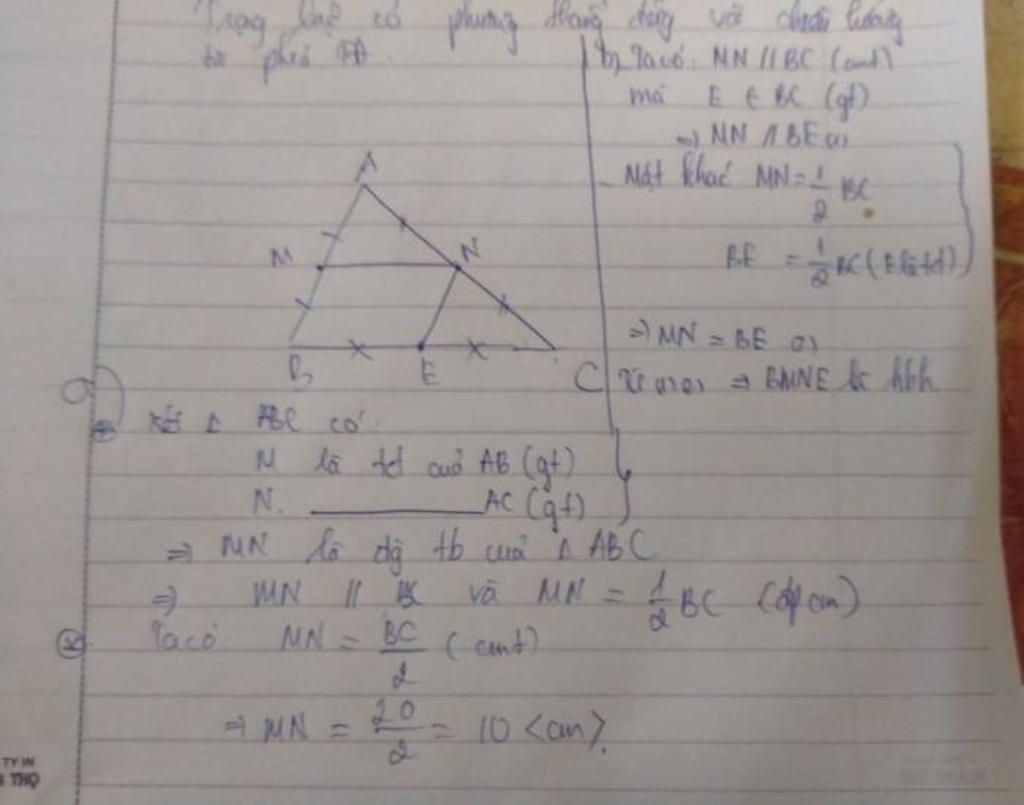 Trọng lực có phương thẳng đứng và chiều hướng
về phía TĐ.
A
M
N
B
E
C
a)
Xét Δ ABC có:
M là tđ của AB (gt)
N. ———— AC (gt)
=> MN là đg tb của Δ ABC
=> MN // BC và MN = 1/2 BC (đpcm)
Ta có MN = BC/2 (cmt)
=> MN = 20/2 = 10 <cm>.
b, Ta có: MN // BC (cmt)
mà E ∈ BC (gt)
=> MN // BE (1)
- Mặt khác MN = 1/2 BC
BE = 1/2 BC (E là tđ)
=> MN = BE (2)
Từ (1), (2) => BMNE là hbh.
TY IN
THỌ